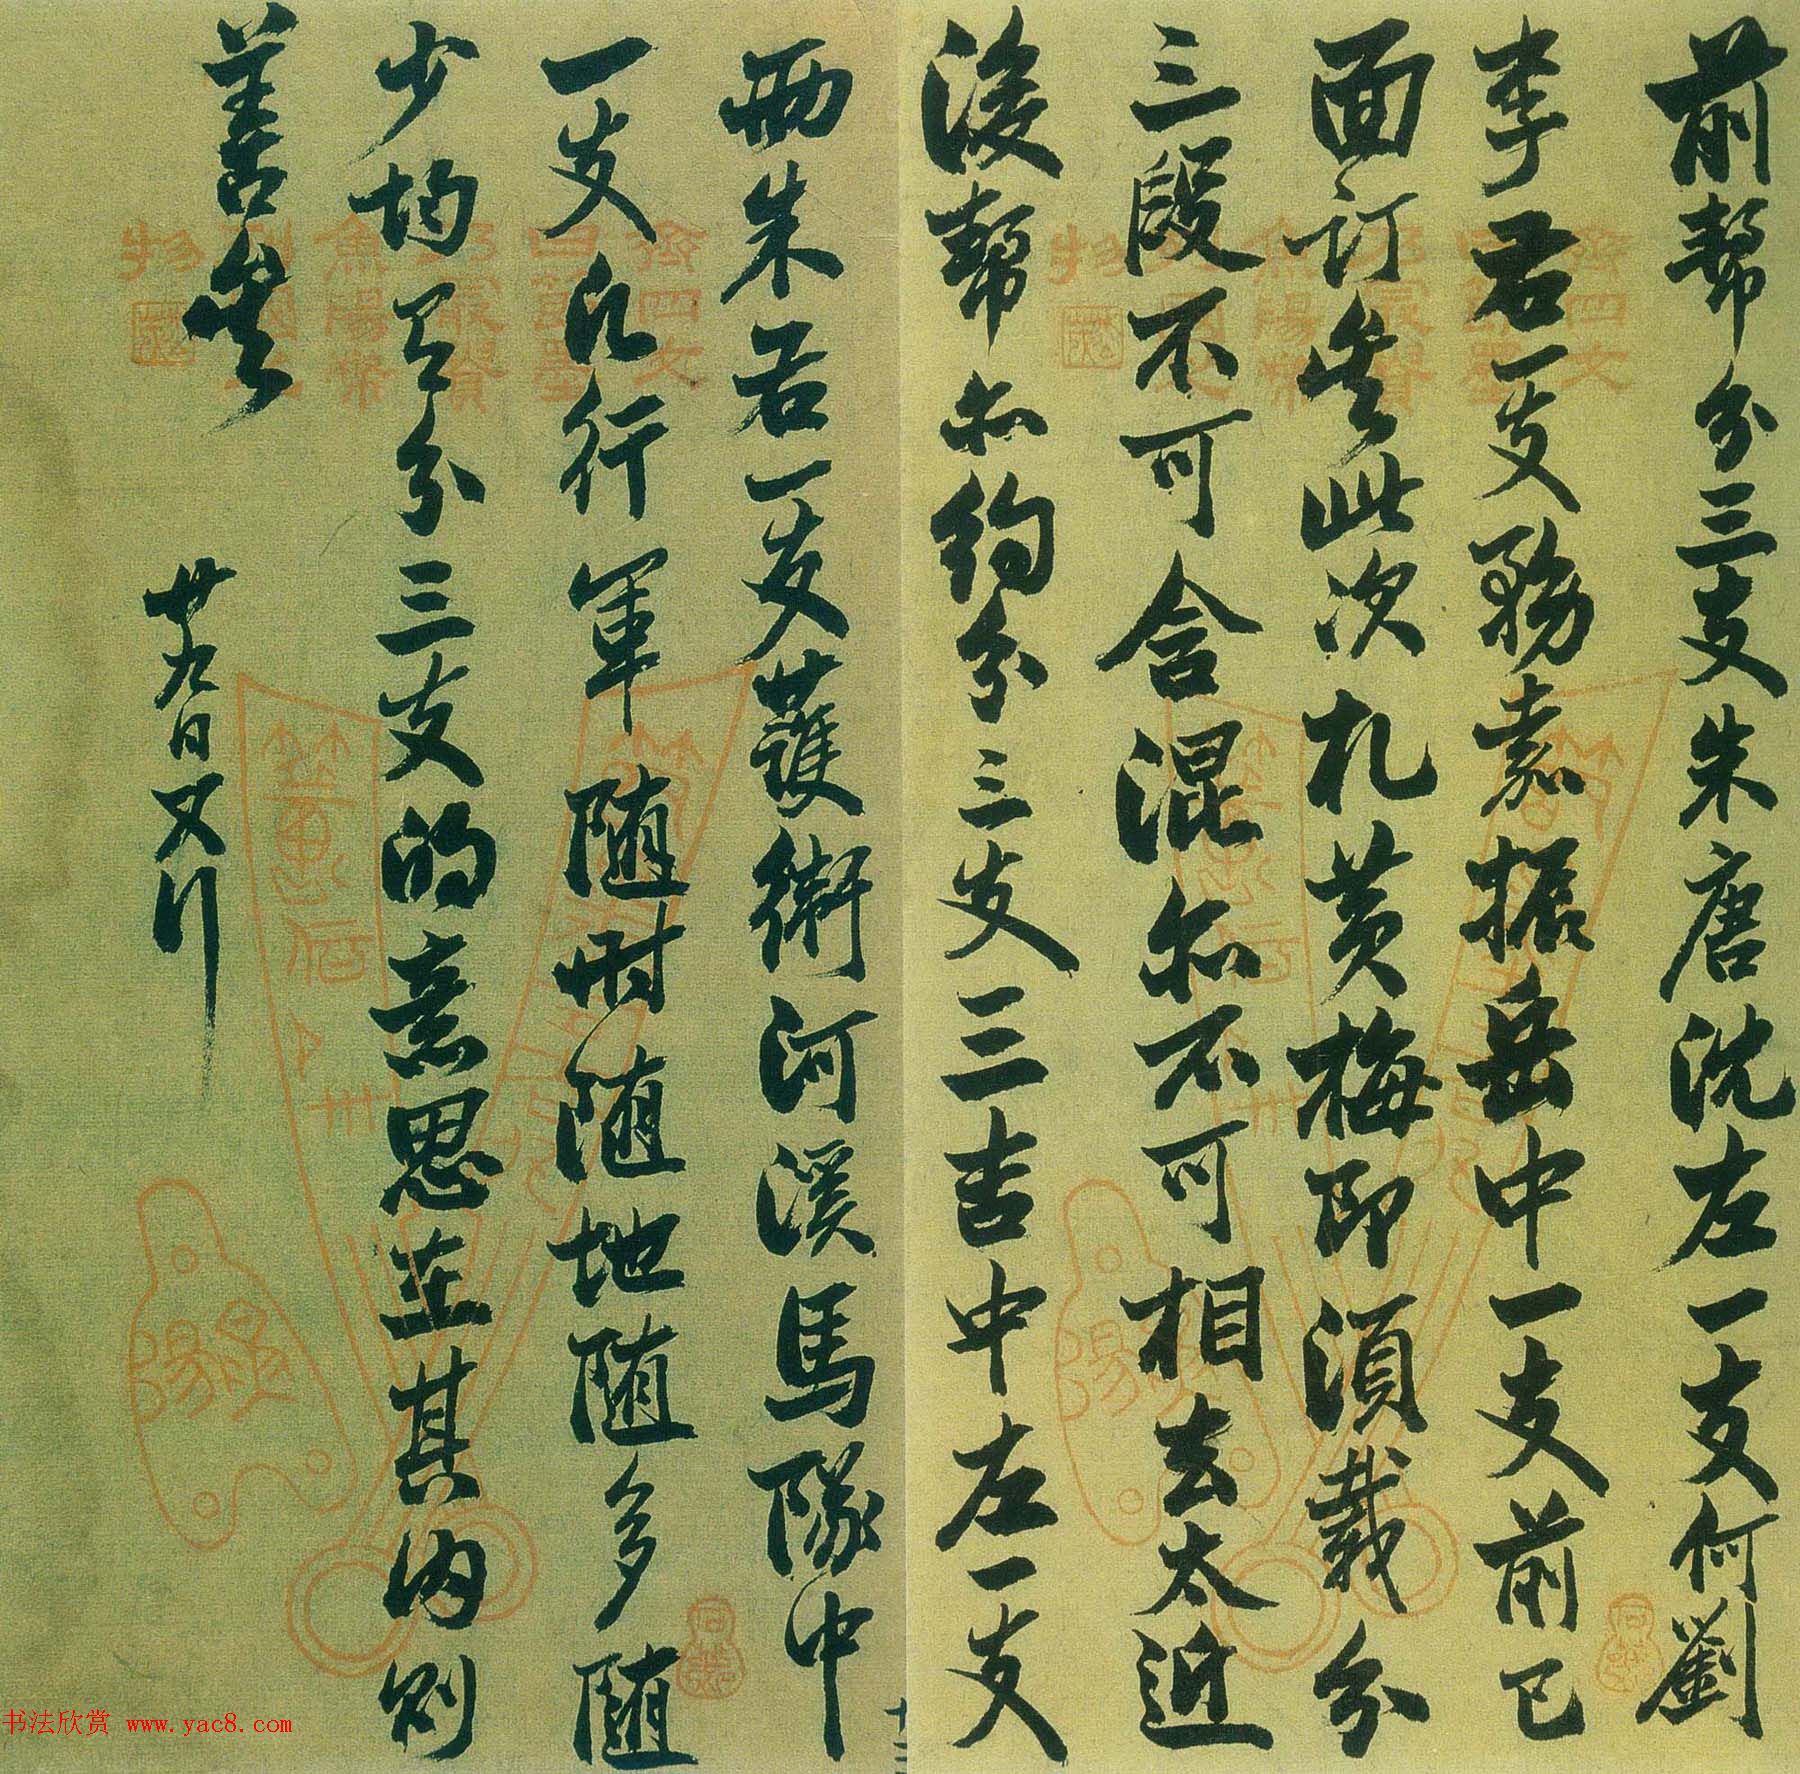 前幫分三支朱唐沈左一支何劉
李君一支務嘉振岳中一支前已
面訂矣此次札黃梅即須截分
三段不可含混亦不可相去太近
後幫亦約分三支三吉中左一支
兩朱君一支護衛河溪馬隊中
一支凡行軍隨時隨地隨多隨
少均有分三支的意思在其內則
善矣
廿九日又行
书法欣赏 www.yac8.com